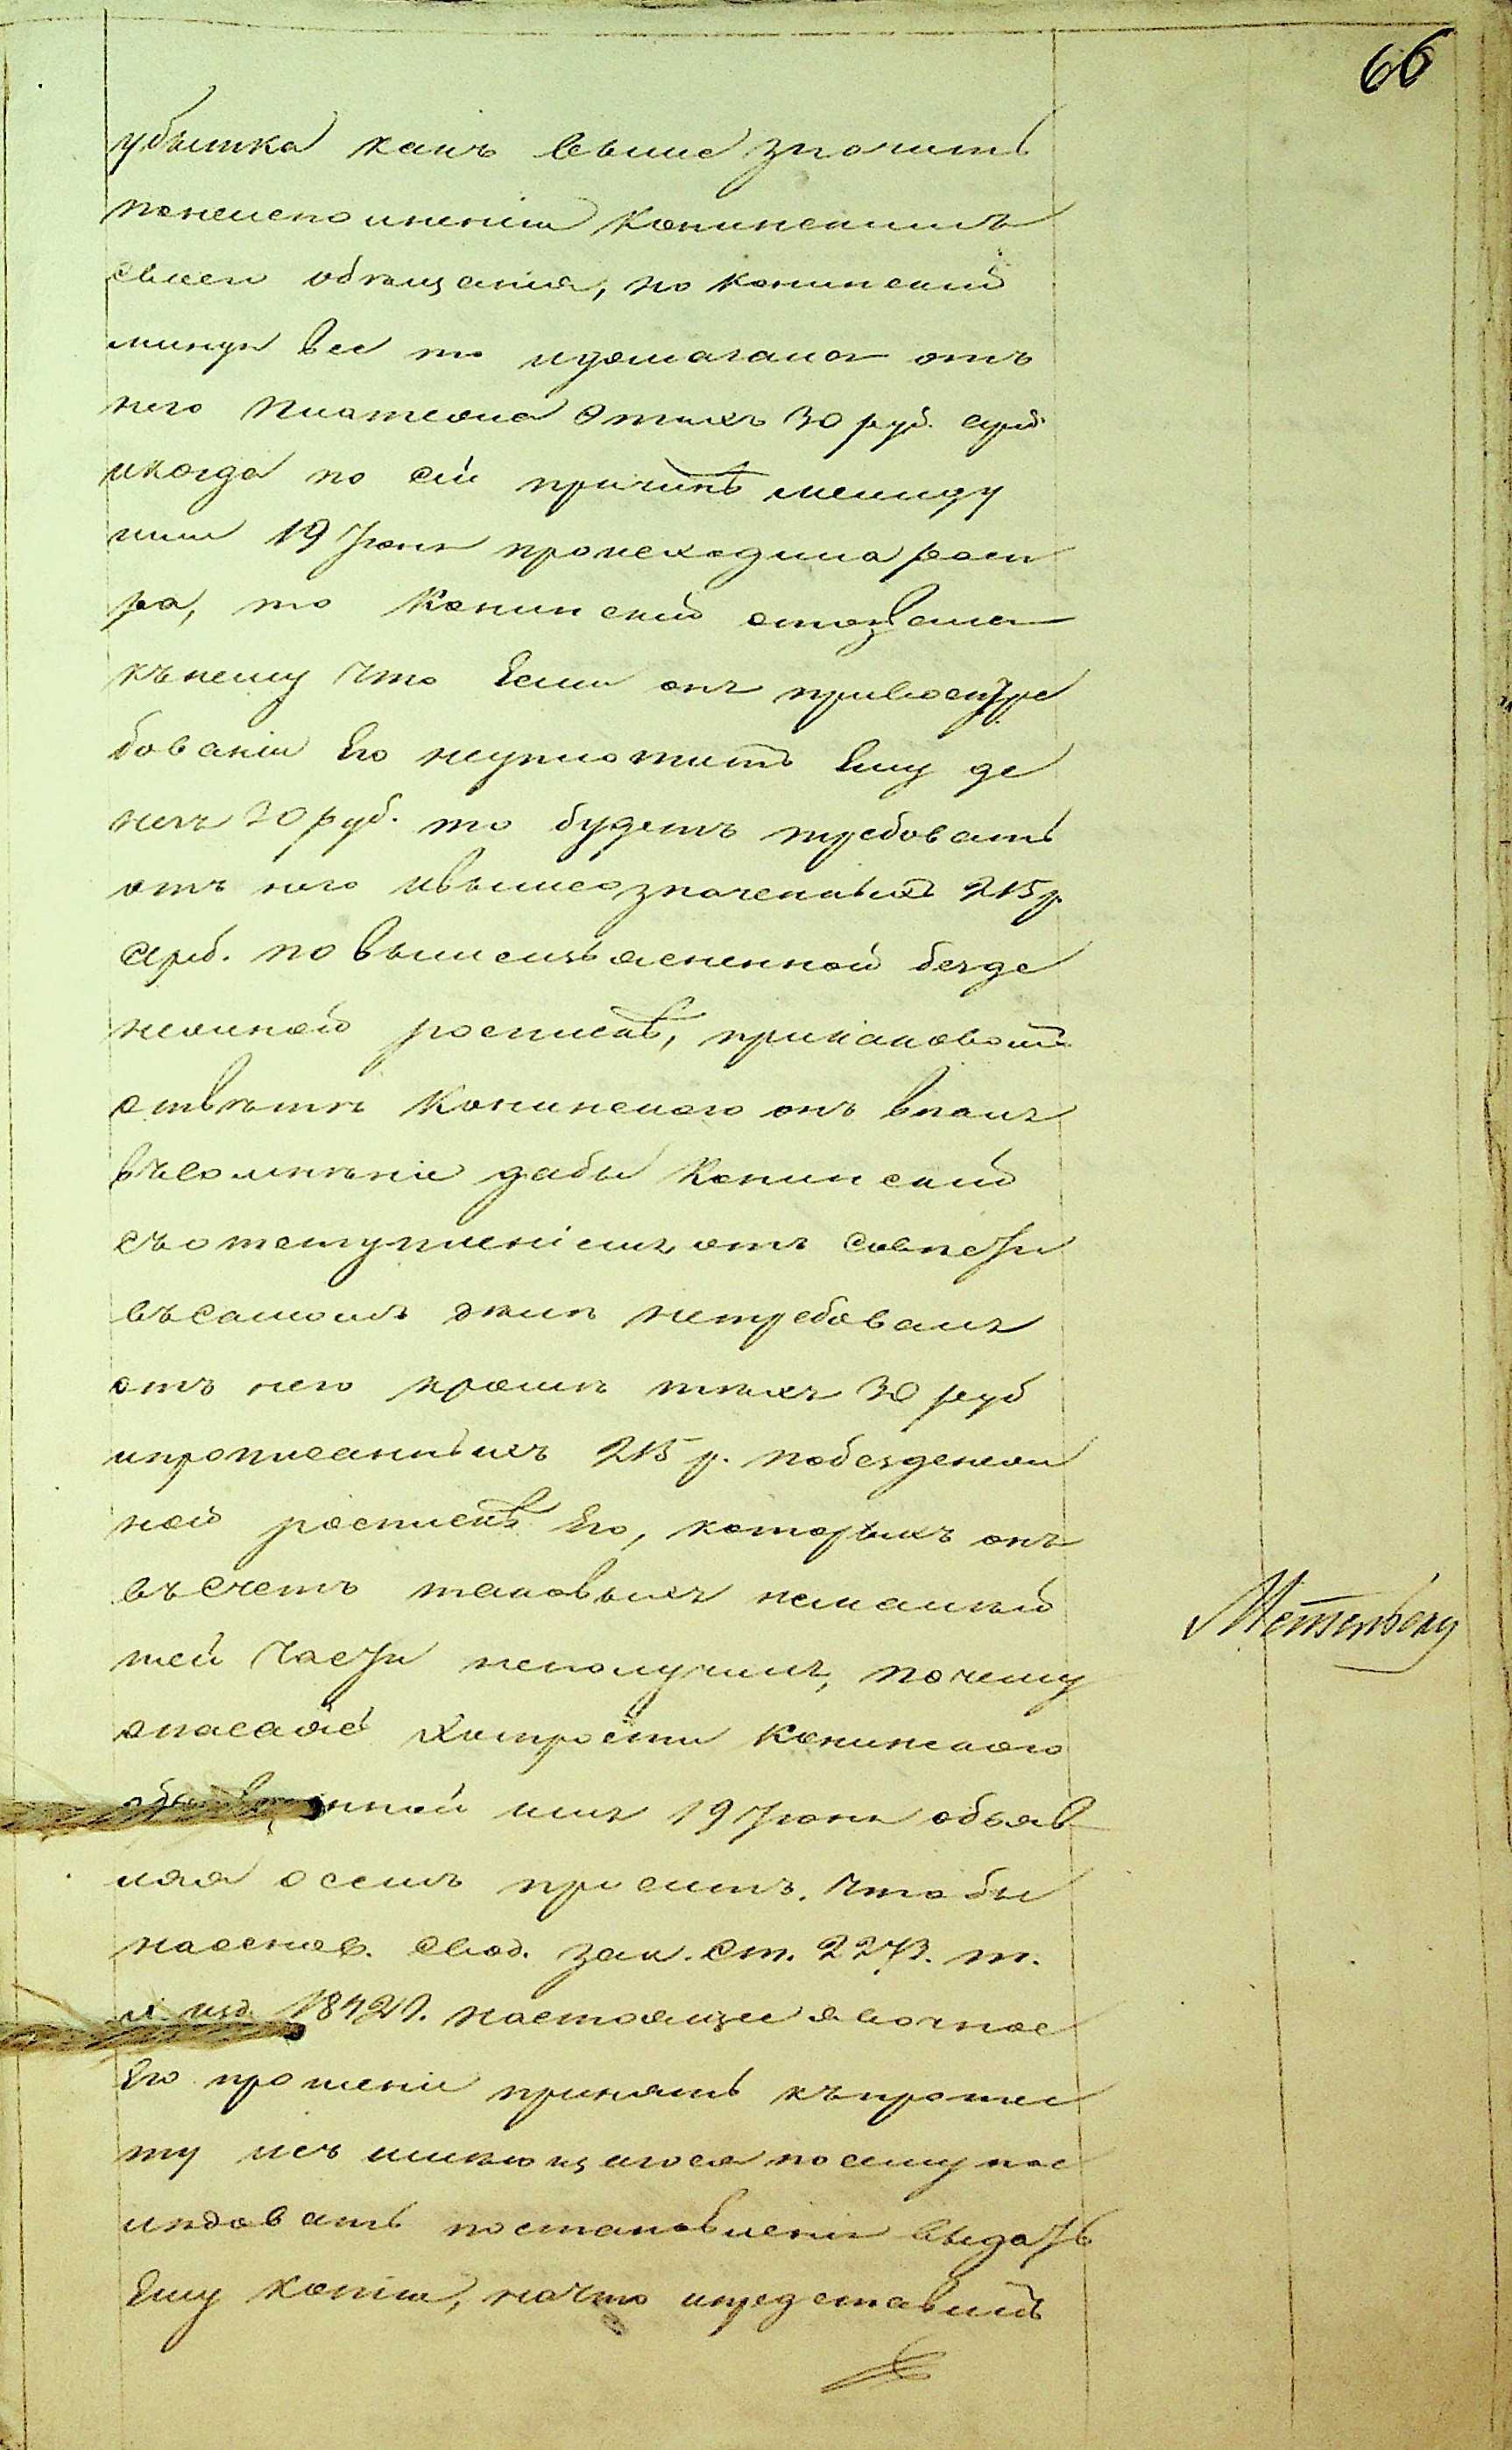 66
убытка какъ выше значитъ
понеисполненію Конинскимъ
своего обѣщанія, но Конинскій
минуя все то домагался отъ
него платежа этихъ 30 руб. сереб.
икогда по сей причинѣ между
ими 19 Іюня происходила рас
ра, то Конинскій отозвался
къ нему что Если онъ привостре
бованіи Его неуплотитъ Ему де
негъ 30 руб. то будетъ требовать
отъ него ивышеозначенныхъ 215 р.
сереб. по вышеизъясненной безде
нежной роспискѣ, притаковомъ
отвѣтѣ Конинского онъ впалъ
въ сомнѣніе дабы Конинскій
съ отступленіемъ отъ совѣсти
въ самомъ дѣлѣ нетребовалъ
отъ него кромѣ тѣхъ 30 руб
ипрописанныхъ 215 р. побезденеж
ной роспискѣ Его, которыхъ онъ
въ счетъ таковыхъ ниmалѣй
шей части неполучилъ, почему
опасаясь хитрости Конинского
нной имъ 19 Іюня объяв
ляя о семъ проситъ. чтобы
наоснов. свод. зак. ст. 2273. т.
изд. 1842 г. настоящее явочное
Его прошеніе принять къ проте
ту исъ имѣющагося по сему пос
лѣдовать постановленія выдать
Ему копію, начто представилъ